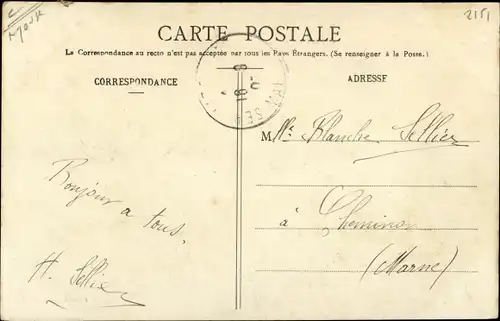 CARTE POSTALE
La Correspondance au recto n'est pas acceptée par tous les Pays Étrangers. (Se renseigner à la Poste.)
CORRESPONDANCE
ADRESSE
2151
Bonjour à tous,
H. Sellier
M. Mlle Blanche Sellier
à Cheminon
(Marne)